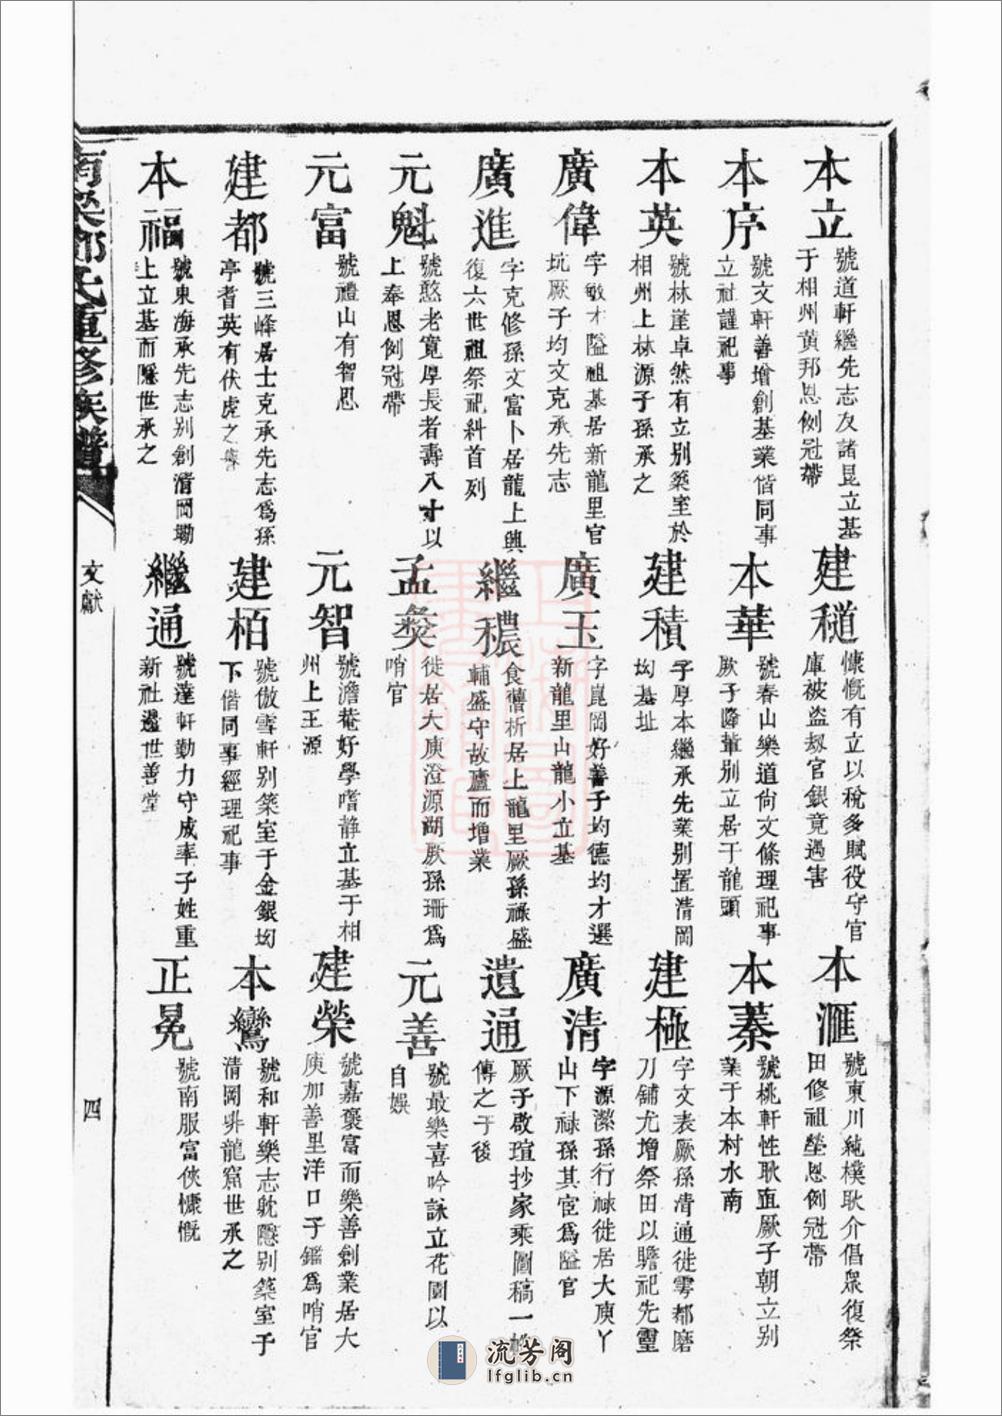 本立
號道軒繼先志友諸昆立基
于相州黄邦恩例冠帶
建穟
慷慨有立以稅多賦役守官
庫被盗刼官銀竟遇害
本滙
號東川純樸耿介倡眾復祭
田修祖塋恩例冠帶
本序
號文軒善增創基業偕同事
立社謹祀事
本華
號春山樂道尙文條理祀事
厥子隆華别立居于龍頭
本蓁
號桃軒性耿直厥子朝立别
業于本村水南
本英
號林崖卓然有立别築室於
相州上林源子孫承之
建積
子厚本繼承先業别置清岡
均基址
建極
字文表厥孫清通徙雩都磨
刀鋪尤增祭田以贍祀先靈
廣偉
字敏才隘祖基居新龍里官
坑厥子均文克承先志
廣玉
字崑岡好善子均德均才選
新龍里山龍小立基
廣清
字源潔孫行祿徙居大庾丫
山下祿孫其宦爲隘官
廣進
字克修孫文富卜居龍上興
復六世祖祭祀糾首列
繼穠
食饟析居上龍里厥孫祿盛
輔盛守故廬而增業
遺通
厥子啟瑄抄家乘圖稿一
傳之于後
元魁
號憨老寬厚長者壽八寸以
上奉恩例冠帶
孟
徙居大庾澄源湖厥孫珊爲
哨官
元善
號最樂喜吟詠立花園以
自娛
元富
號禮山有智思
元智
號澹菴好學嗜静立基于相
州上王源
建榮
號嘉褒富而樂善創業居大
庾加善里洋口子鑑爲哨官
建都
號三峰居士克承先志爲孫
亭耆英有伏虎之
建栢
號傲雪軒别築室于金銀均
下偕同事經理祀事
本鸞
號和軒樂志躭隱别築室于
清岡㘭龍窟世承之
本福
號東海承先志别創清岡㘭
上立基而隱世承之
繼通
號達軒勤力守成率子姓重
新社遷世善堂
正晃
號南服富俠慷慨
南梁鄧氏重修族譜
文獻
四
流芳阁
lfglib.cn